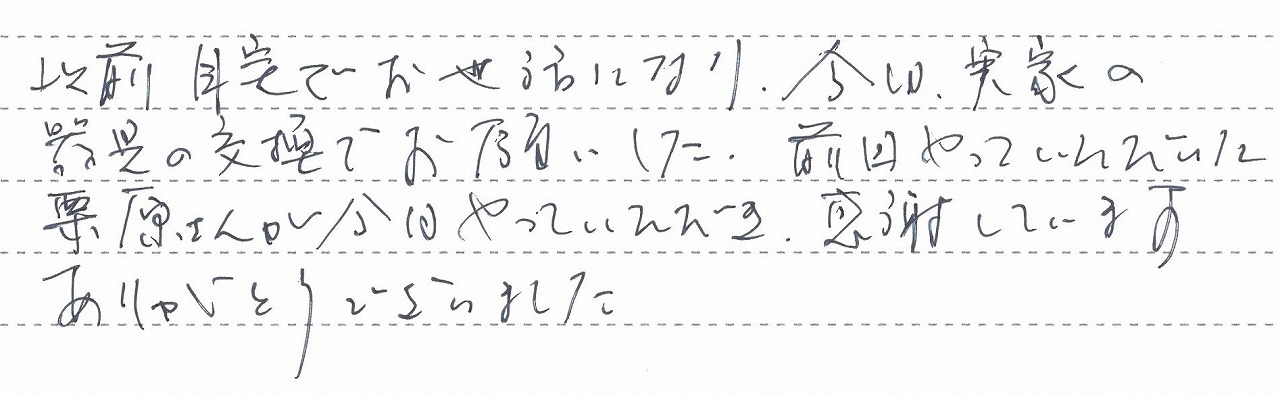 以前自宅でお世話になり、今回、実家の
器具の交換でお願いした。前回やっていただいた
栗原さんが今回やっていただき、感謝しています
ありがとうございました